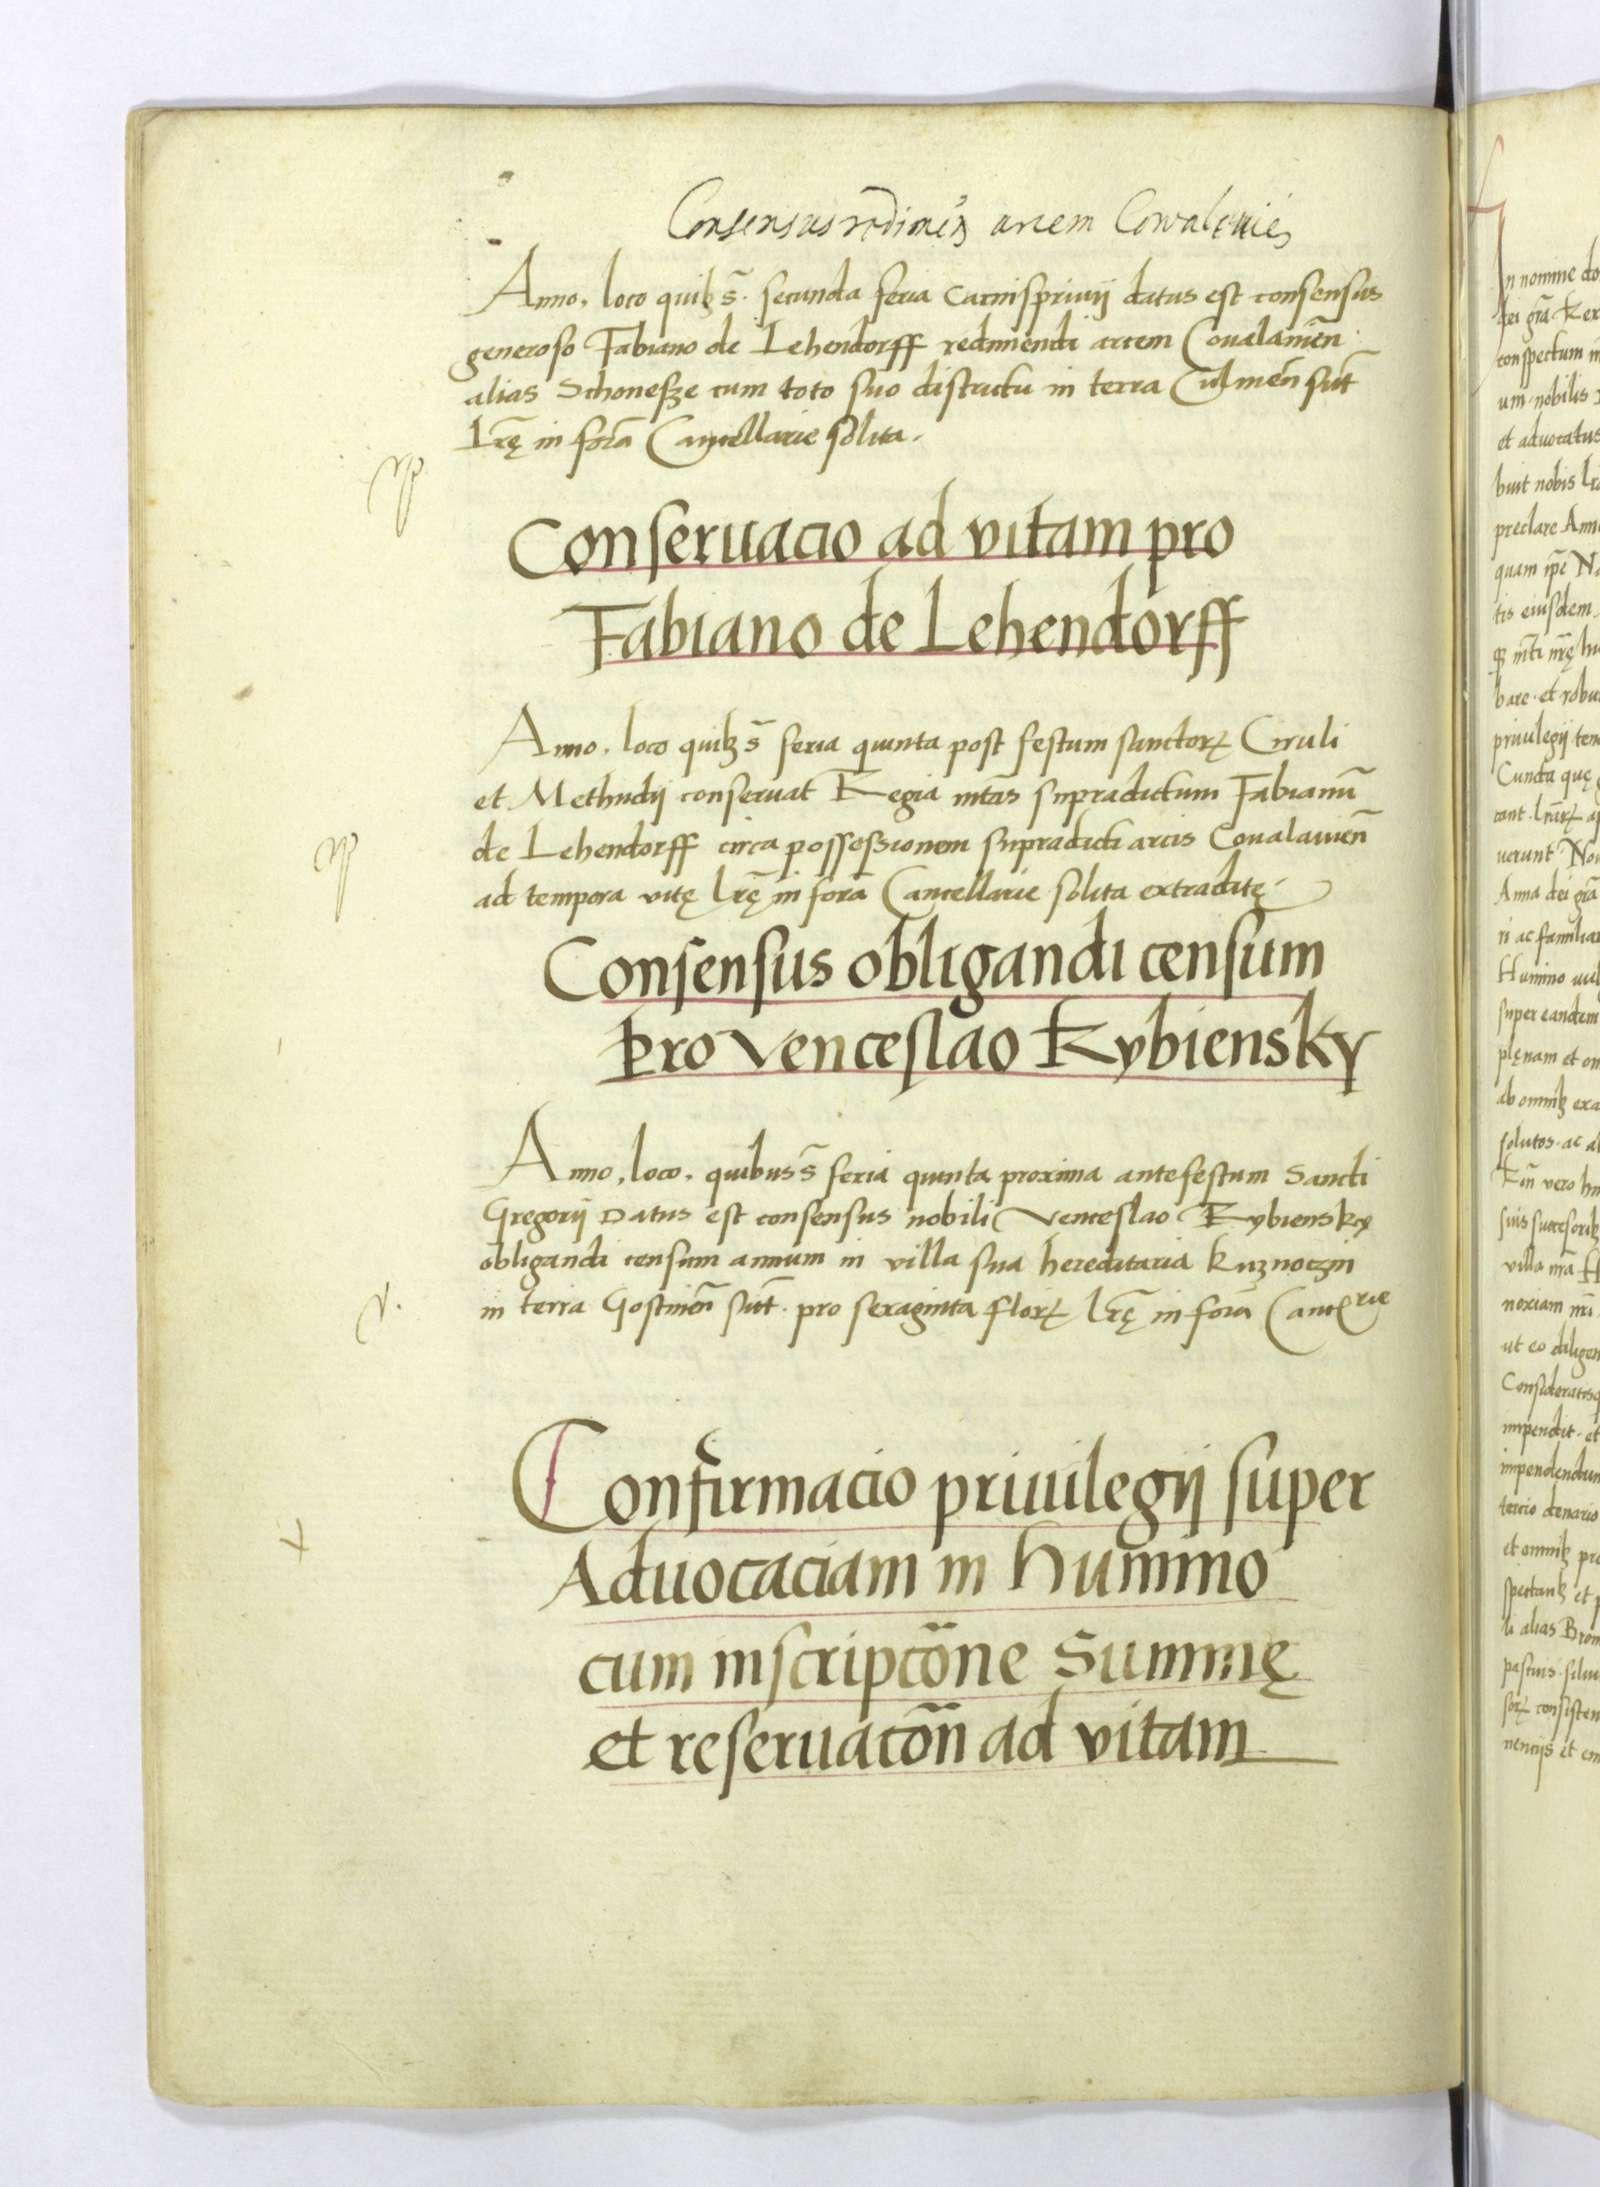 Consensus redimen arcem Covalevien
Anno, loco quibꝫ s̄. secunda feria Carnisprivii datus est consensus
generoso Fabiano de Lehendorff redimendi arcem Coualauien̄
alias Schonesze cum toto suo districtu in terra Culmen̄ sūt
Lrę̄ in forā Cancellarie solita.
Conseruacio ad vitam pro
Fabiano de Lehendorff
Anno, loco quibꝫ s̄ feria quinta post festum sanctorꝝ Ciruli
et Methudij conseruat Regia mtās supradictum Fabianū
de Lehendorff circa possessionem supradicti arcis Coualauien̄
ad tempora vitę lrę̄ in forā Cancellarie solita extraditę
Consensus obligandi censum
pro Venceslao Rybiensky
Anno, loco, quibus s̄ feria quinta proxima ante festum Sancti
Gregorij Datus est consensus nobili Venceslao Rybiensky
obligandi censum annum in villa sua hereditaria Kuznoczin
in terra Gostinen̄ sūt. pro sexaginta florꝝ lrę̄ in forā Canc
Confirmacio priuilegij super
Aduocaciam in Humino
cum inscripcōne Summę
et reseruacōn ad vitam
In nomine do
dei grā Rex
conspectum
um nobilis
et aduocatus
buit nobis
preclare Ann
quam ip̄e
tis eiusdem
bare et robu
priuilegij ten
Cuncta quę
uerunt
Anna dei grā
ri ac familiar
Humino
super eandem
plęnam et om
ab omnibꝫ exa
solutos ac
vero
suis successoribꝫ
villa nrā
noxiam nrī
ut eo diligen
Consideratisq
impendit et
impendendum
tercio denario
et omnibꝫ pro
spectantibꝫ et
alias Brom
pascuis silui
sorꝝ consisten
nencijs et em